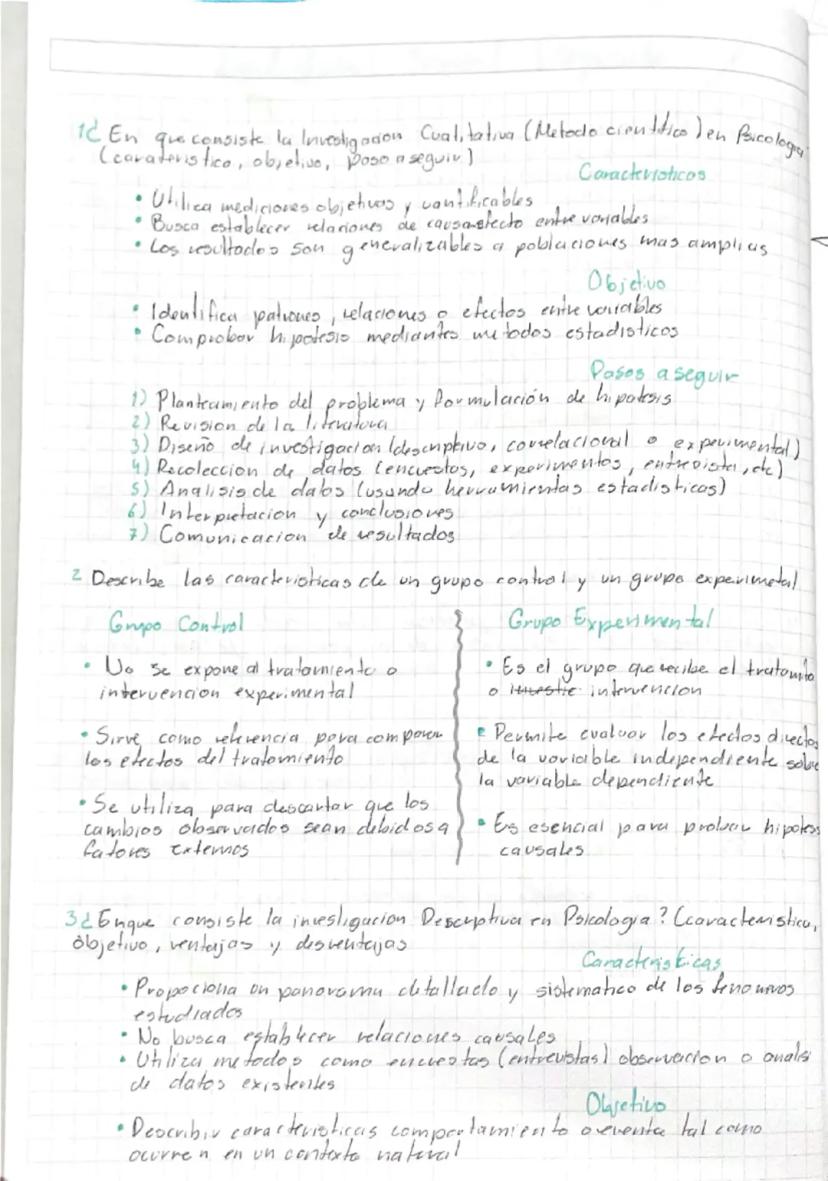 1¿ En que consiste la Investigacion Cualitativa (Metodo cientifico) en Psicologia
(caracteristica, objetivo, paso a seguir)
Caracteristicas
• Utiliza mediciones objetivas y cuantificables
• Busca establecer relaciones de causa efecto entre variables
• Los resultados son generalizables a poblaciones mas amplias
Objetivo
• Identifica patrones, relaciones o efectos entre variables
• Comprobar hipotesis mediantes metodos estadisticos
Pasos a seguir
1) Planteamiento del problema y formulación de hipotesis
2) Revision de la literatura
3) Diseño de investigacion (descriptivo, correlacional o experimental)
4) Recoleccion de datos (encuestas, experimentos, entrevista, etc)
5) Analisis de datos (usando herramientas estadisticas)
6) Interpretacion y conclusiones
7) Comunicacion de resultados
2 Describe las caracteristicas de un grupo control y un grupo experimetal
Grupo Control
• No se expone al tratamiento o
intervencion experimental
• Sirve como referencia para comparar
los efectos del tratamiento
• Se utiliza para descartar que los
cambios observados sean debidos a
factores externos
Grupo Experimental
• Es el grupo que recibe el tratamito
o intervencion
• Permite evaluar los efectos directos
de la variable independiente sobre
la variable dependiente
• Es esencial para probar hipotesis
causales
3¿ Enque consiste la investigacion Descriptiva en Psicologia? (caracteristica,
objetivo, ventajas y desventajas
Caracteristicas
• Propociona un panorama detallado y sistematico de los fenomenos
estudiados
• No busca establecer relaciones causales
• Utiliza metodos como encuestas (entrevistas) observacion o analisi
de datos existentes
Objetivo
• Describir caracteristicas comportamiento o eventa tal como
ocurren en un contexto natural